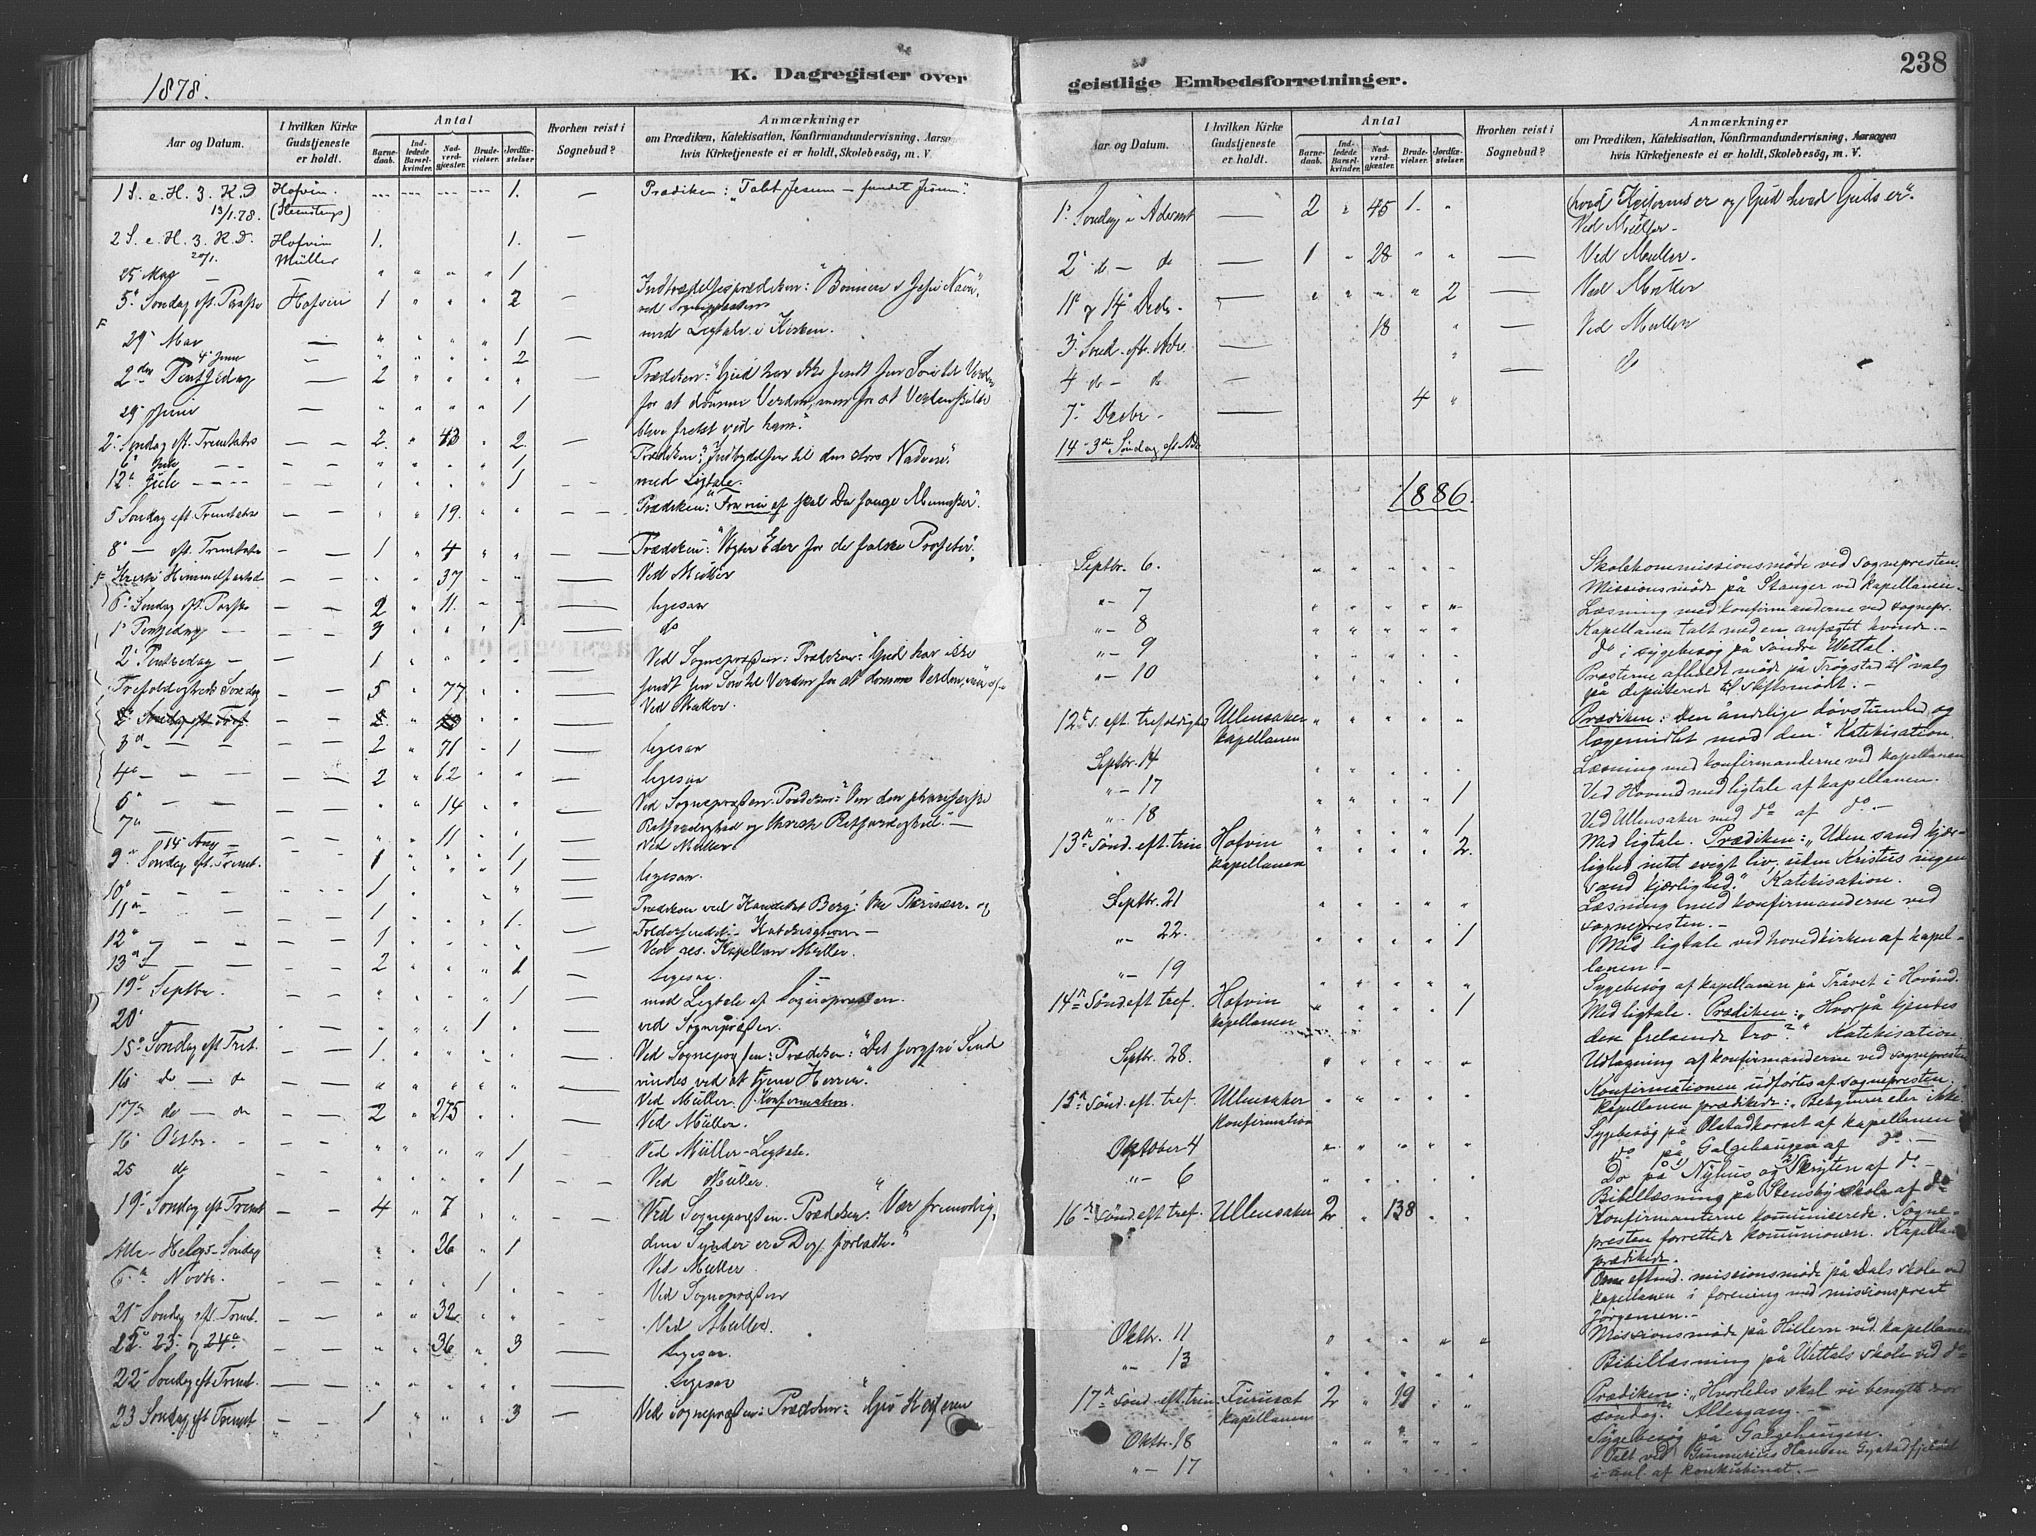 1878.
K. Dagregister over
Aar og Datum.
I hvilken Kirke Gudstjeneste er holdt.
Antal
Barnedaab.
Indledede Barselkvinder.
Nadverdgjæster.
Brudevielser.
Jordfæstelser.
Hvorhen reist i Sognebud?
Anmærkninger
om Prædiken, Katekisation, Konfirmandundervisning, Aarsagen
hvis Kirketjeneste ei er holdt, Skolebesög, m. V.
1 S. e. H. 3. K. D. Hofvin. 1. Prædiken: "Tabt Jesum – fundet Jesum".
13/1.78.
2 S. e. H. 3. K. D. Hofvin 1. 1.
20/1. Müller
25 Mai 1
5te Søndag eft. Paaske Hofvin 1 2 Indtrædelsesprædiken: Bønnen i Jesu Navn,
29 Mai 1 med Ligtale i Kirken.
4 Juni 2
2den Pintsedag 2 Prædiken: "Gud har ikke sendt sin Søn til Verden
29 Juni 1 for at dømme Verden, men for at Verden skulde
blive frelst ved ham."
2 Søndag eft. Trinitatis 2 43 2 Prædiken: "Indbydelsen til den store Nadvere."
6 Juli 1
12 Juli 1 med Ligtale.
5 Søndag eft. Trinitatis 19 Prædiken: "Fra nu af skal Du fange Mennesker".
8 eft. Trinitatis 1 4 Prædiken: "Vogter Eder for de falske Profeter",
Kristi Himmelfartsd. 37 Ved Müller
6 Søndag eft. Paaske 2 11 Ligesaa
1 Pintsedag 3 1 do
2 Pintsedag 1 Ved Sognepræsten: Prædiken: "Gud har ikke
Trefoldigheds Søndag 5 77 sendt sin Søn til Verden for at dømme Verden,
Ved Müller.
3 2 71 1 Ligesaa
4 2 62 Ligesaa
6 14 Ved Sognepræsten. Prædiken: "Om den phariseiske
7 11 Retfærdighed og Christi Retfærdighed."
14 Aug Ved Müller.
9 Søndag eft. Trinit. 1 1 Ligesaa.
10 1
11 1 1. Prædiken ved Kandidat Berg:
12 1 Katekisation
13 2 1 Ved res. Kapellan Müller.
Ligesaa.
19 Septbr. 1 med Ligtale af Sognepræsten.
20 1 ved Sognepræsten.
15 Søndag eft. Trit. 1. Ved Sognepræsten: Prædiken:
16 do – do vindes ved at tjene Herren."
17 do – do 2 275 Ved Müller. Konfirmation.
Ved Müller.
16 Octbr. 1 Ved Müller – Ligtale.
25 do 1 Ved Müller.
19 Søndag eft Trinit 4 7 Ved Sognepræsten. Prædiken: "Vær frimodig,
dine Synder er Dig forladte."
Alle-Helgs-Søndag 26 1 Ved Müller
6 Novbr. 1 Ved Sognepræsten
21 Søndag eft. Trinit. 32 Ved Müller.
22 23 og 24 36 3 Ligesaa.
22 Søndag eft Trinit. Ligesaa
23 Søndag eft Trinit 1 3 Ved Sognepræsten: Prædiken: "Giv Keiseren
geistlige Embedsforretninger.
238
Aar og Datum.
I hvilken Kirke Gudstjeneste er holdt.
Antal
Barnedaab.
Indledede Barselkvinder.
Nadverdgjæster.
Brudevielser.
Jordfæstelser.
Hvorhen reist i Sognebud?
Anmærkninger
om Prædiken, Katekisation, Konfirmandundervisning, Aarsagen
hvis Kirketjeneste ei er holdt, Skolebesög, m. V.
hvad Keiserens er og Gud hvad Guds er".
1 Søndag i Advent 2 45 1. Ved Müller –
2 do – do 1 28 Ved Müller.
11 og 14 Decbr. 2 Ved Müller
3 Sønd. eft. Adv. 18 Ved Müller
4 do – do do
7 Decbr. 4
14 – 3die Søndag eft Adv
1886.
Septbr. 6. Skolekommissionsmöde ved sognepresten.
" 7 Missionsmöde på Stanger ved kapellanen.
" 8 Læsning med konfirmanderne ved sognepr.
" 9 Kapellanen talt med en anfægtet kvinde.
do i sygebesøg på Søndre Wettal.
" 10 Præsterne afholdt möde på Trögstad til valg
på deputerede til stiftsmödt.
12te S. eft. trefoldighed Ullensaker Prædiken: "Den åndelige døvstumhed og
kapellanen lægemidlet mod den." Katekisation.
Septbr. 14 Læsning med konfirmanderne ved kapellanen
" 17 1 Ved Hovind med ligtale af kapellanen.
" 18 1 Ved Ullensaker med do af do.
13de Sønd. eft. trin Hofvin 2. Med ligtale. Prædiken: "Uden sand kjær-
kapellanen lighed intet evigt liv, uden Kristus ingen
sand kjærlighed." Katekisation.
Septbr. 21 Læsning med konfirmanderne ved
sognepresten.
" 22. 1 Med ligtale ved hovedkirken af kapel-
lanen
" 19 Sygebesøg af kapellanen på Tråvet i Hovind.
14de Sønd eft tref. Hofvin 1 Med ligtale. Prædiken: "Hvorpå kjendes
kapellanen den frelsende tro?" Katekisation
Septbr. 28. Udtagning af konfirmanderne ved sognepresten
15de Sønd. eft tref. Ullensaker Konfirmationen udførtes af sognepresten,
konfirmation kapellanen prædikede: "Bekymrer eder ikke"
Oktober 4 Sygebesøg på Olstadkorset af kapellanen
do på Galgehaugen af do.
" 6 Do på Nyhus og Skryten af do
Bibellæsning på Stensby skole af do
16de Sønd. eft tref. Ullensaker 2 138 Konfirmanterne kommunicerede. Sogne-
presten forrettede kommunionen. Kapellan
prædikede.
eftmd. missionsmöde på Dals skole ved
kapellanen i forening med missionsprest
Jørgensen.
Oktbr. 11 Missionsmöde på Hillern ved kapellanen
" 13 Bibellæsning på Wettals skole ved do
17de Sønd. eft. trin Furuset 2 19 Prædiken: "Hvorledes skal vi benytte vor
kapellanen søndag." Altergang.
Oktbr. 18 Sygebesøg på Galgehaugen.
" 17 Talt ved Gunnerius Hansen
i anl. af konkubinat.